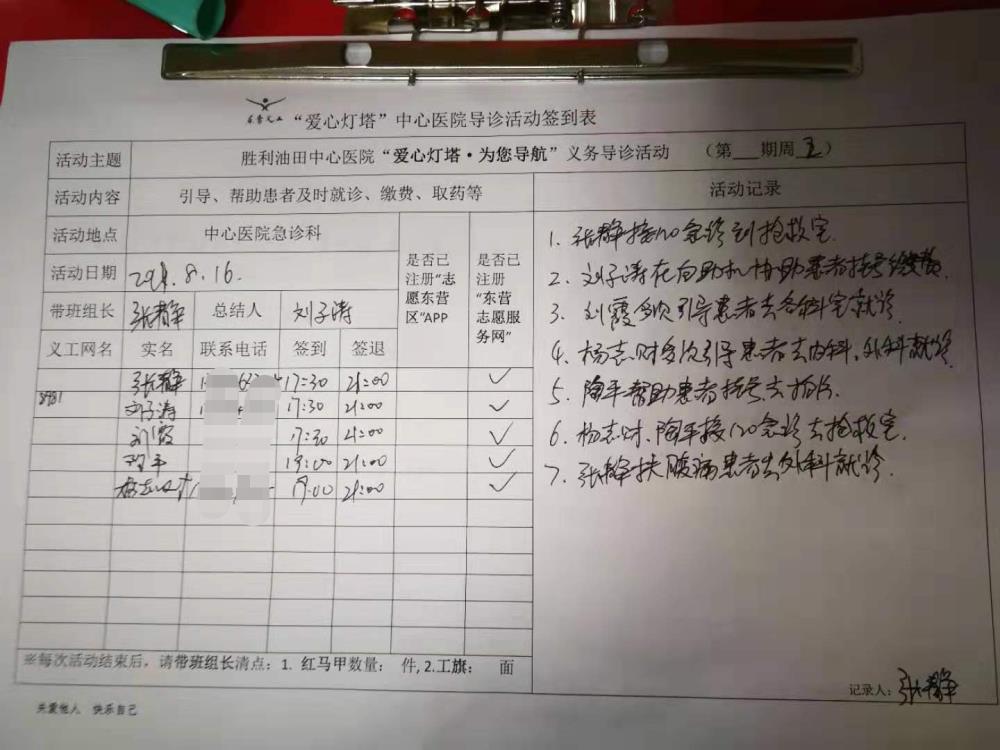 东营义工 “爱心灯塔”中心医院导诊活动签到表
活动主题 胜利油田中心医院“爱心灯塔·为您导航”义务导诊活动 （第 期周五）
活动内容 引导、帮助患者及时就诊、缴费、取药等 活动记录
活动地点 中心医院急诊科
活动日期 8.16.
带班组长 张静 总结人 刘子涛
是否已注册“志愿东营区”APP
是否已注册“东营志愿服务网”
义工网名 实名 联系电话 签到 签退
张静 17:30 21:00 ✓
刘子涛 17:30 21:00 ✓
刘霞 17:30 21:00 ✓
陶平 19:00 21:00 ✓
杨志财 19:00 21:00 ✓
1. 张静接120急诊到抢救室.
2. 刘子涛在自助机协助患者挂号缴费.
3. 刘霞多次引导患者去各科室就诊.
4. 杨志财多次引导患者去内科、外科就诊
5. 陶平帮助患者挂号去拍片.
6. 杨志财、陶平接120急诊去抢救室.
7. 张静扶腹痛患者去外科就诊.
※每次活动结束后，请带班组长清点：1. 红马甲数量： 件, 2.工旗： 面
记录人：张静
关爱他人 快乐自己